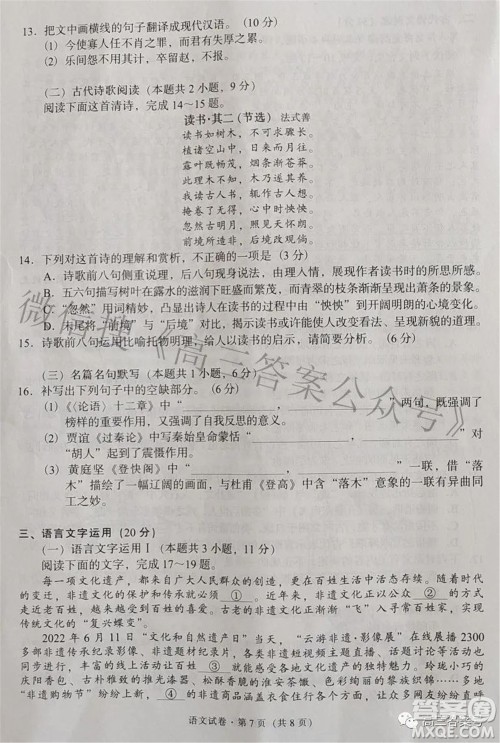 13. 把文中画横线的句子翻译成现代汉语。（10 分）
（1）今使寡人任不肖之罪，而君有失厚之累。
（2）乐间怨不用其计，卒留赵，不报。
（二）古代诗歌阅读（本题共 2 小题，9 分）
阅读下面这首清诗，完成 14～15 题。
读书·其二（节选） 法式善
读书如树木，不可求骤长。
植诸空山中，日来而月往。
露叶既畅茂，烟条渐苍莽。
此理木不知，木乃遂其养。
我读古人书，辄作古人想。
掩卷了无得，心中时怏怏。
忽然古明月，照见天怀朗。
前境所造非，后境改观倘。
14. 下列对这首诗的理解和赏析，不正确的一项是（3 分）
A. 诗歌前八句侧重说理，后八句现身说法，由理入情，展示作者读书时的所思所感。
B. 五六句描写树叶在露水的滋润下旺盛而繁茂，而青翠的枝条渐渐呈现出萧条的景象。
C. “忽然”用词精妙，凸显出诗人在读书的过程中由“怏怏”到开阔明朗的心境变化。
D. 末尾将“前境”与“后境”对比，揭示读书可以使人改变思考方法、呈现新貌的道理。
15. 诗歌前八句运用比喻托物明理，给人以读书的启示，请简要分析。（6 分）
（三）名篇名句默写（本题共 1 小题，6 分）
16. 补写出下列句子中的空缺部分。（6 分）
（1）《〈论语〉十二章》中“ ， ”两句，既强调了
榜样的重要作用，又强调了自我反思的意义。
（2）贾谊《过秦论》中写秦始皇命蒙恬“ ， ”，
对“胡人”起到了震慑作用。
（3）黄庭坚《登快阁》中“ ， ”一联，借“落
木”描绘了一幅辽阔的画面，与杜甫《登高》中含“落木”意象的一联有异曲同
工之妙。
三、语言文字运用（20 分）
（一）语言文字运用Ⅰ（本题共 3 小题，11 分）
阅读下面的文字，完成 17～19 题。
每一项文化遗产，都来自广大人民群众的创造，更在百姓生活中活态存续。随着时代的
变迁，非遗文化的保护和传承方式 ① ，但其精神内核始终不变，正以 ② 的方式
走近老百姓，又丰富着百姓的生活。古老的非遗文化正渐渐“飞”入寻常百姓家，实现
传统文化的“复兴蝶变”。
2022 年 6 月 11 日“文化和自然遗产日”当天，“云游非遗·影像展”在线展播 2300
多部非遗传承纪录影像、非遗题材纪录片，各类非遗专题直播、话题讨论等活动也
同步进行，丰富的线上活动让百姓足不出户便可 ③ 非遗的独特魅力。玲珑小巧的
庆阳香包、古朴雅致的推光漆器、松软香甜的云片糕、色彩明艳的布老虎……多地
“非遗购物节”纷纷上新， ④ 的非遗商品涵盖衣食住行各个领域，让众多网友纷纷直呼
语文试卷·第 7 页（共 8 页）
微信搜《高三答案公众号》
高三答案号
答案圈
MXQE.COM